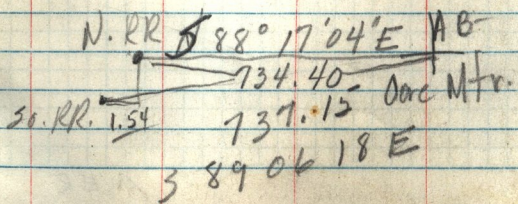 N. RR 88° 17' 04" E AB-
734.40
Mtr.
So. RR. 1.54
737.15
89 06 18 E